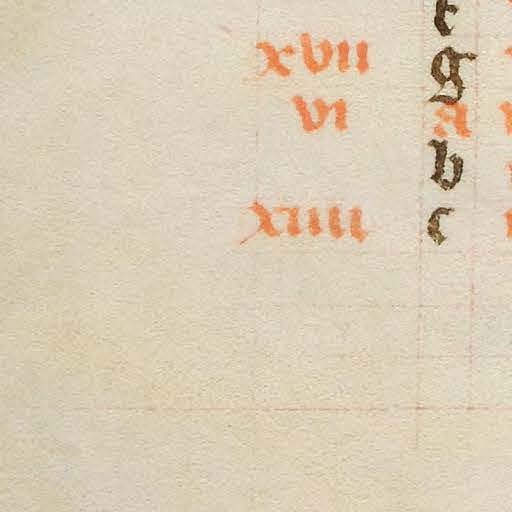 xvii g
vi A
b
xiiii c